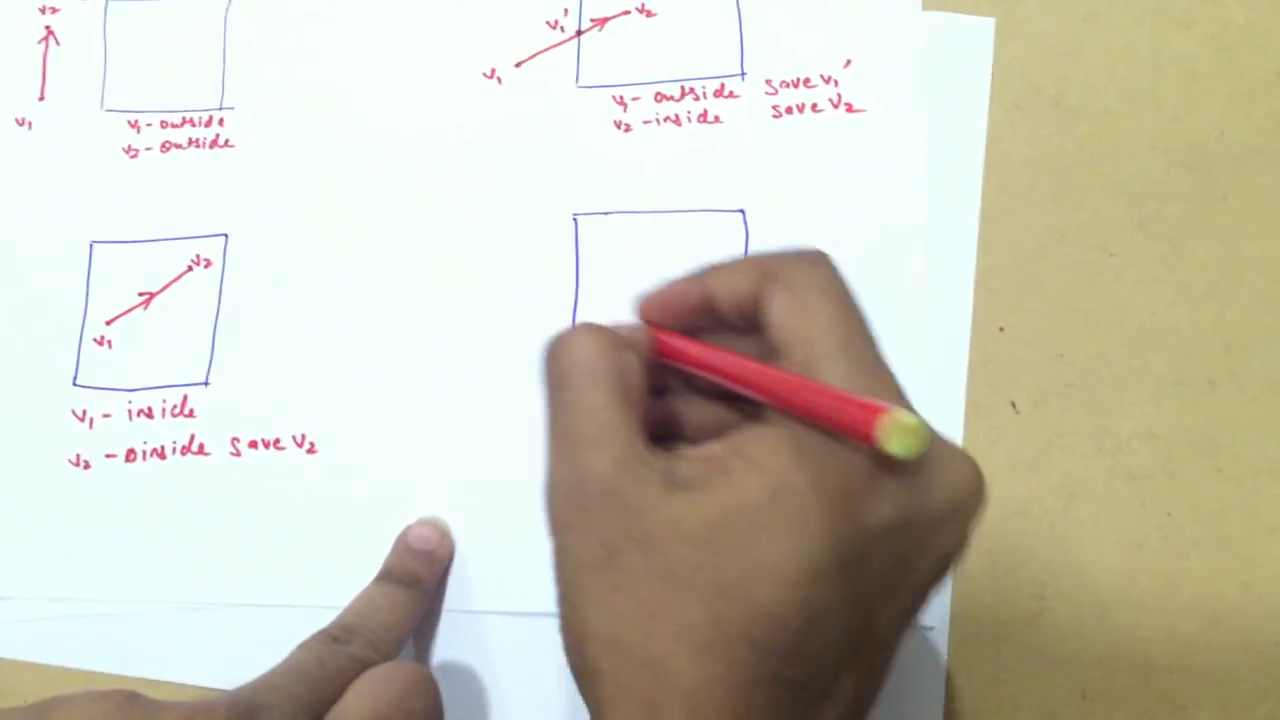 v2
v1
v1 - outside
v2 - outside
v1'
v2
v1
v1 - outside save v1'
v2 - inside save v2
v2
v1
v1 - inside
v2 - inside save v2